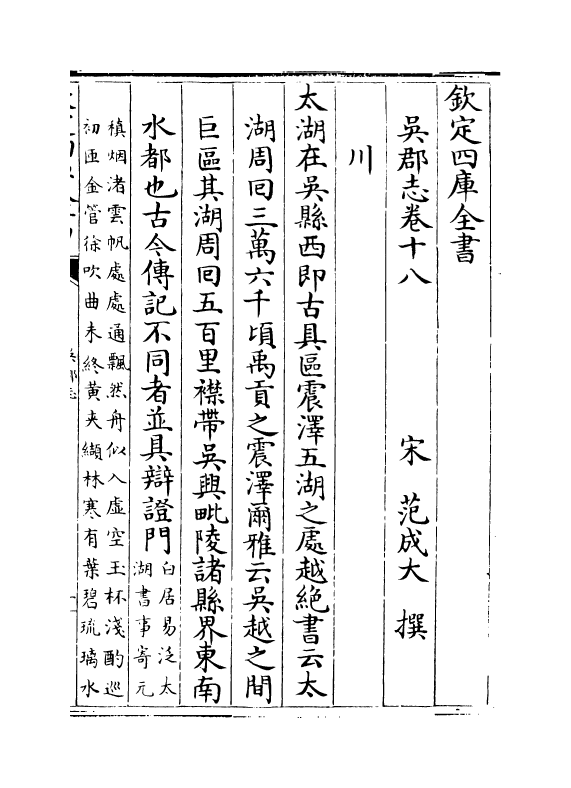 欽定四庫全書
吳郡志卷十八
宋 范成大 撰
川
太湖在吳縣西即古具區震澤五湖之處越絶書云太
湖周囘三萬六千頃禹貢之震澤爾雅云吳越之間
巨區其湖周囘五百里襟帶吳興毗陵諸縣界東南
水都也古今傳記不同者並具辯證門白居易泛太
湖書事寄元
稹烟渚雲帆處處通飄然舟似入虛空玉杯淺酌巡
初匝金管徐吹曲未終黄夾纈林寒有葉碧琉璃水
吳郡志